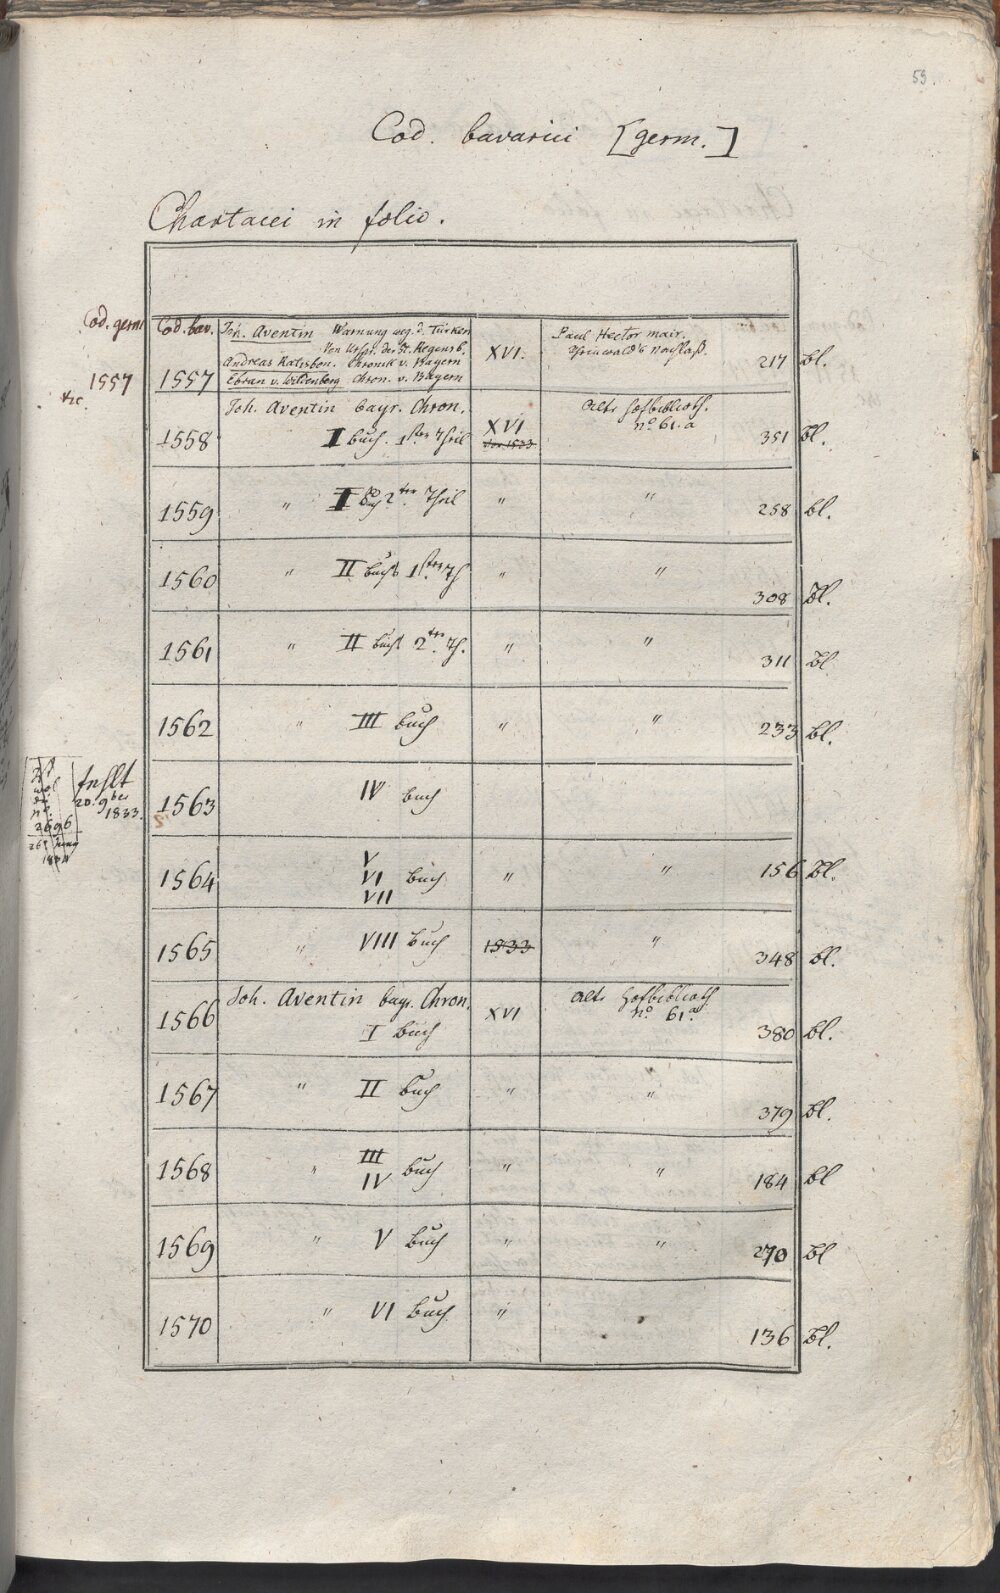 59.
Cod. bavarici [germ.]
Chartacei in folio.
Cod. germ. Cod. bav. Joh. Aventin Warnung weg. d. Türken
Von Urspr. der St. Regensb.
Andreas Ratisbon. Chronik v. Bayern
1557 etc. 1557 Ebran v. Wildenberg Chron. v. Bayern XVI. Paul Hector mair. Nachlaß. 217 bl.
1558 Joh. Aventin bayr. Chron.
I Buch. 1ster Theil XVI Alte Hofbiblioth.
no 61.a 351 Bl.
1559 " I Buch 2ter Theil " " 258 bl.
1560 " II Buch 1ster Th " " 308 Bl.
1561 " II Buch 2ter Th. " " 311 Bl
1562 " III Buch " " 233 bl.
fehlt
20. 9ber
1833. 1563 IV buch
2696
1564 V
VI Buch " " 156 Bl.
VII
1565 " VIII Buch 1533 " 348 bl.
1566 Joh. Aventin bayr. Chron.
I Buch XVI Alte Hofbiblioth
no 61.a 380 bl.
1567 " II Buch " " 379 Bl.
1568 " III
IV Buch " " 184 bl
1569 " V Buch " " 270 Bl
1570 " VI Buch " " 136 Bl.